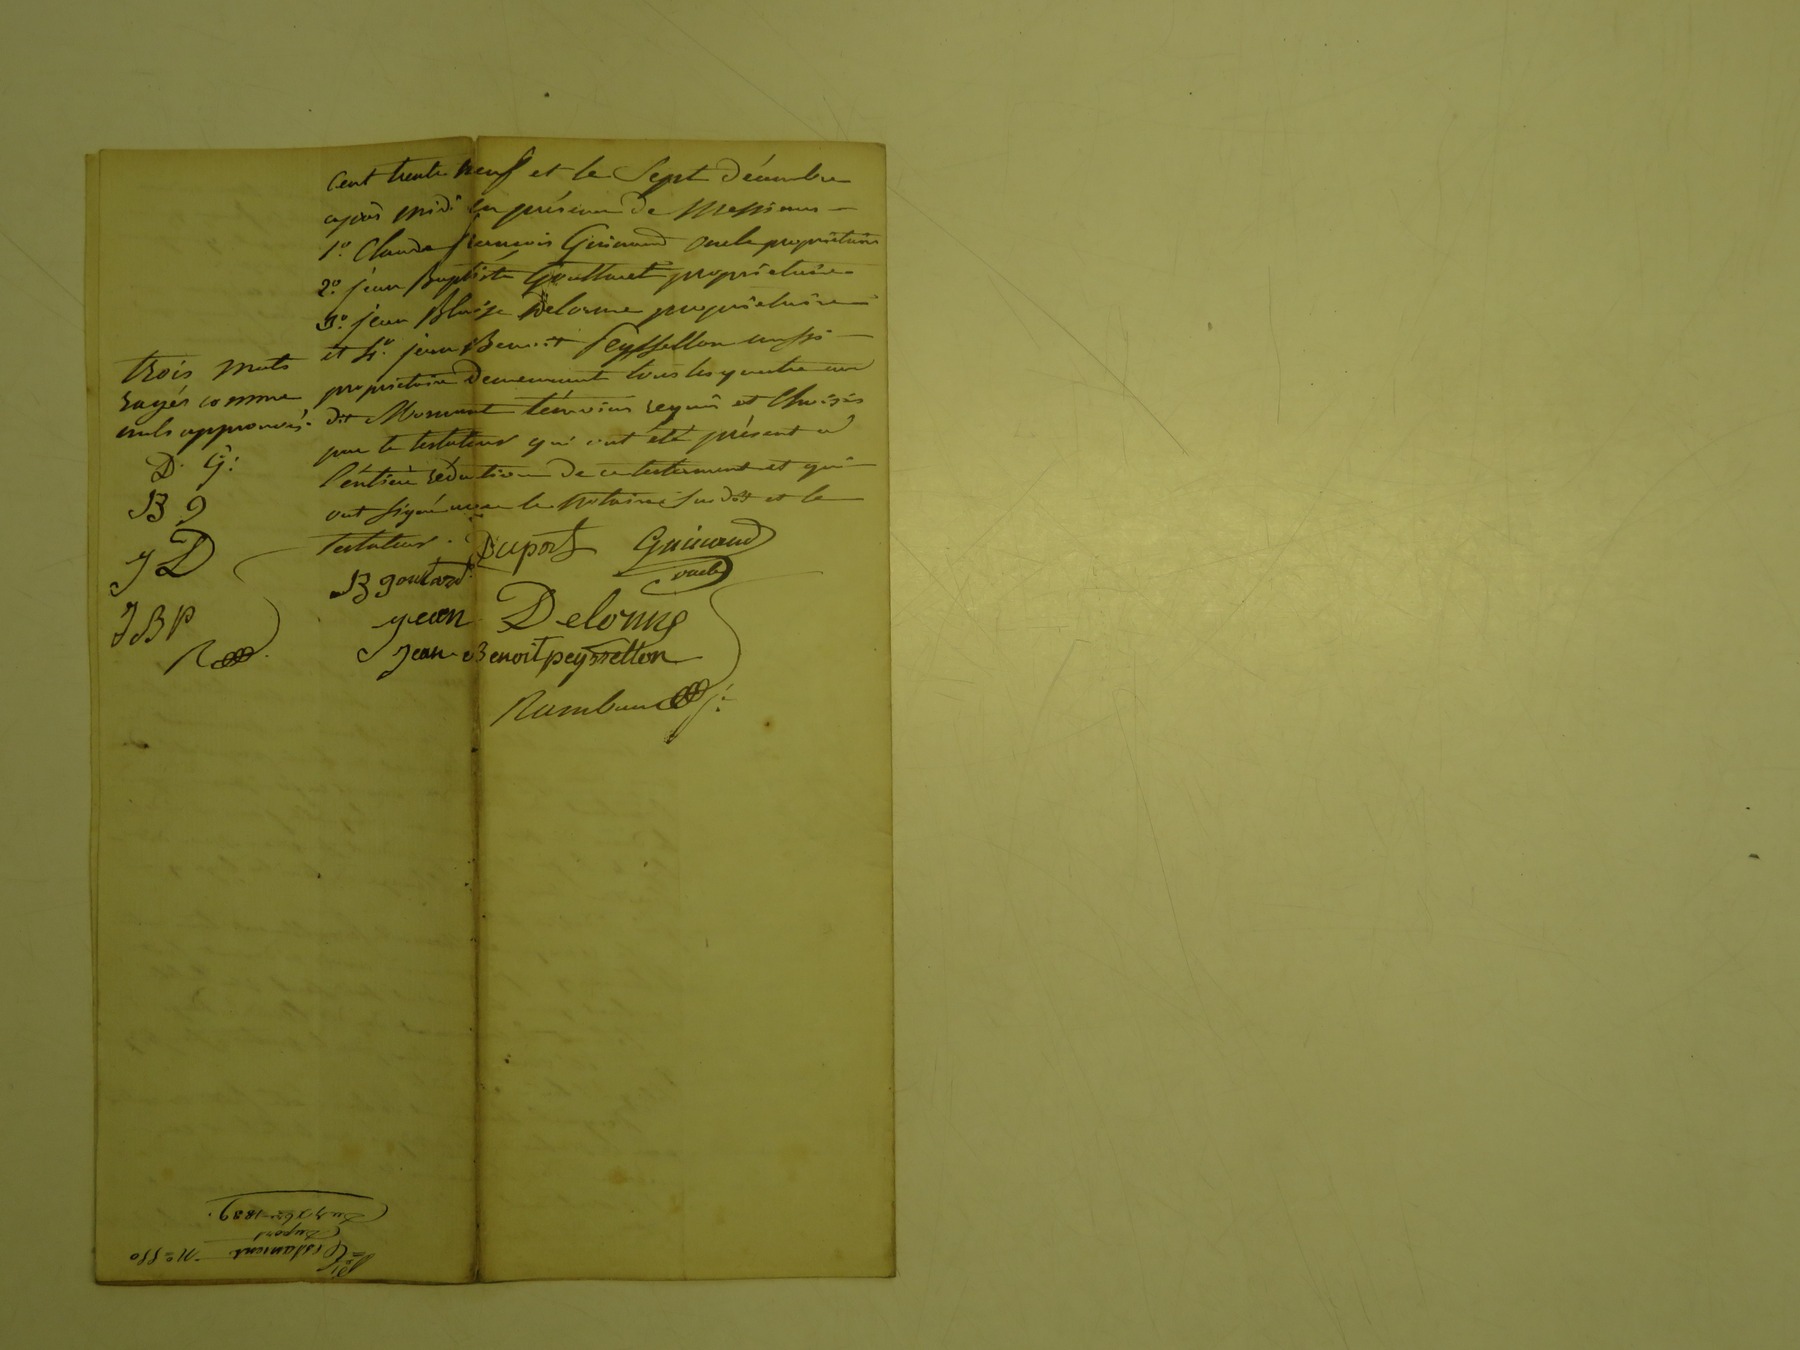 cent trente neuf et le Sept décembre
après midi en présence de Messieurs
1º. Claude françois Guinand oncle propriétaire
2º. jean Baptiste Gouttaret propriétaire
3º. jean Blaise Delorme propriétaire
et 4º. jean Benoit Peyssellon aussi
propriétaire demeurant tous les quatre au
dit Mornant témoins requis et choisis
par le testateur qui ont été présent a
l'entière rédaction de ce testament et qui
ont signé avec le Notaire susdit et le
testateur.
trois mots
rayés comme
nuls approuvés.
D. G:
B g
J D
J B P
R
Duport Guinand
oncle
B goutard
jean Delorme
Jean Benoit peyssellon
Rambau
Testament Nº 550
Duport
Du 7 Xbre 1839.